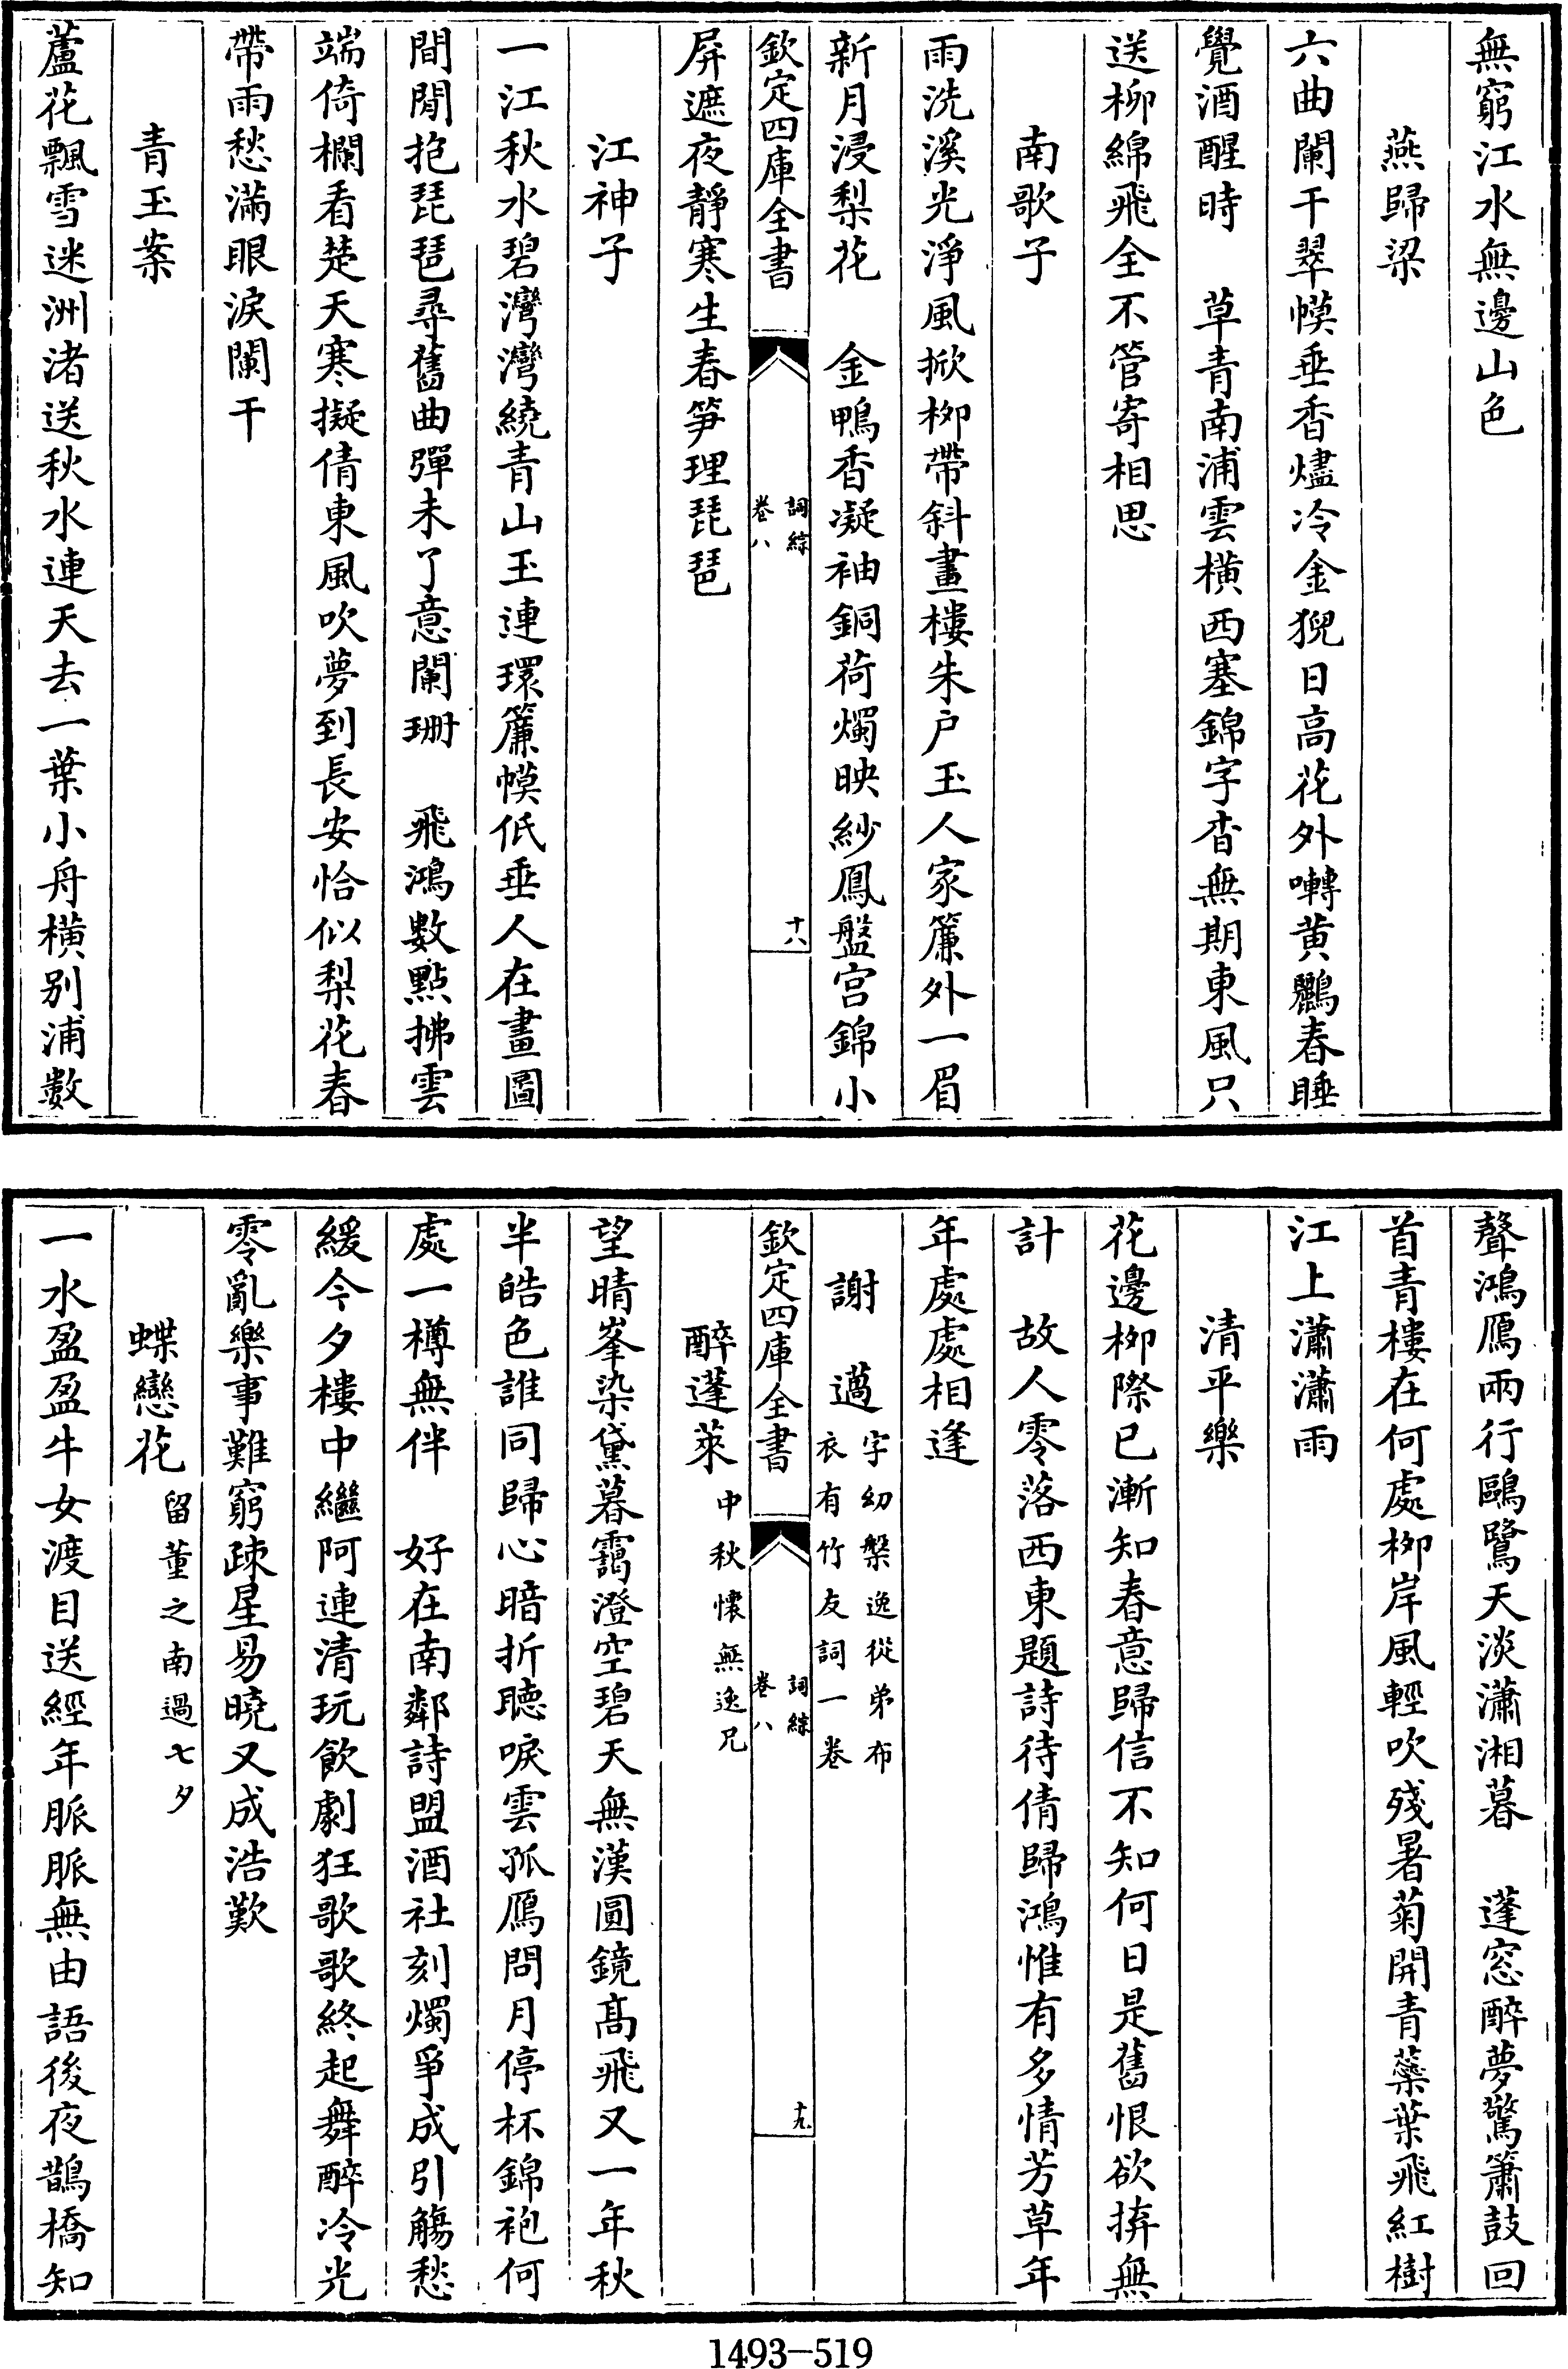 無窮江水無邊山色
燕歸梁
六曲闌干翠幙垂香燼冷金猊日高花外囀黄鸝春睡
覺酒醒時　草青南浦雲橫西塞錦字杳無期東風只
送柳綿飛全不管寄相思
南歌子
雨洗溪光淨風掀柳帶斜畫樓朱户玉人家簾外一眉
新月浸梨花　金鴨香凝袖銅荷燭映紗鳳盤宫錦小
欽定四庫全書
詞綜
卷八
十八
屏遮夜靜寒生春笋理琵琶
江神子
一江秋水碧灣灣繞青山玉連環簾幙低垂人在畫圖
間閒抱琵琶尋舊曲彈未了意闌珊　飛鴻數點拂雲
端倚欄看楚天寒擬倩東風吹夢到長安恰似梨花春
帶雨愁滿眼淚闌干
青玉案
蘆花飄雪迷洲渚送秋水連天去一葉小舟横别浦數
聲鴻鴈兩行鷗鷺天淡瀟湘暮　蓬窓醉夢驚簫鼓回
首青樓在何處柳岸風輕吹殘暑菊開青蘂葉飛紅樹
江上瀟瀟雨
清平樂
花邊柳際已漸知春意歸信不知何日是舊恨欲拚無
計　故人零落西東題詩待倩歸鴻惟有多情芳草年
年處處相逢
謝邁 字幼槃逸從弟布
衣有竹友詞一卷
欽定四庫全書
詞綜
卷八
十九
醉蓬萊 中秋懷無逸兄
望晴峯染黛暮靄澄空碧天無漢圓鏡髙飛又一年秋
半皓色誰同歸心暗折聽唳雲孤鴈問月停杯錦袍何
處一樽無伴　好在南鄰詩盟酒社刻燭爭成引觴愁
緩今夕樓中繼阿連清玩飲劇狂歌歌終起舞醉冷光
零亂樂事難窮疎星易曉又成浩歎
蝶戀花 留董之南過七夕
一水盈盈牛女渡目送經年脈脈無由語後夜鵲橋知
1493-519